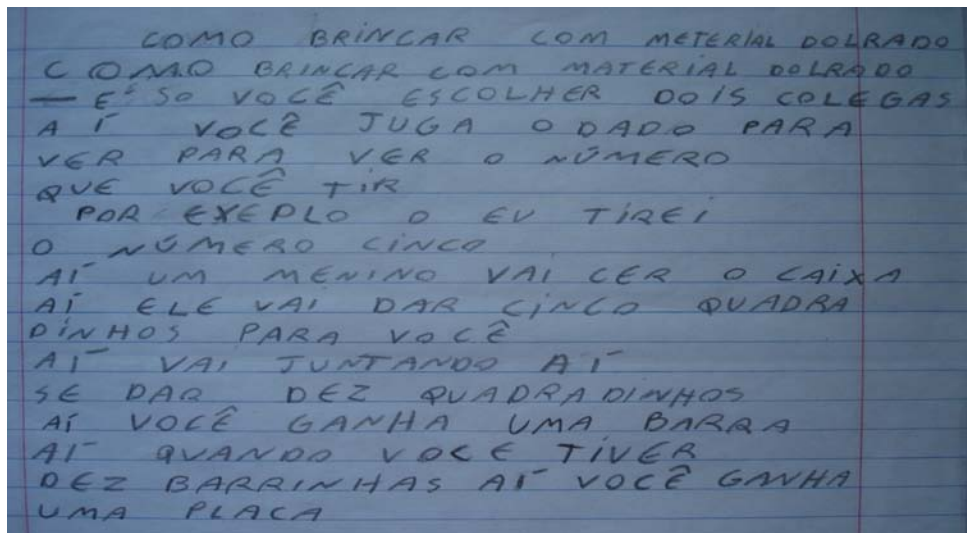 COMO BRINCAR COM METERIAL DOLRADO
COMO BRINCAR COM MATERIAL DOLRADO
— E' SO VOCÊ ESCOLHER DOIS COLEGAS
AÍ VOCÊ JUGA O DADO PARA
VER PARA VER O NÚMERO
QUE VOCÊ TIR
POR EXEPLO O EU TIREI
O NÚMERO CINCO
AÍ UM MENINO VAI CER O CAIXA
AÍ ELE VAI DAR CINCO QUADRA
DINHOS PARA VOCÊ
AÍ VAI JUNTANDO AÍ
SE DAR DEZ QUADRADINHOS
AÍ VOCÊ GANHA UMA BARRA
AÍ QUANDO VOCE TIVER
DEZ BARRINHAS AÍ VOCÊ GANHA
UMA PLACA